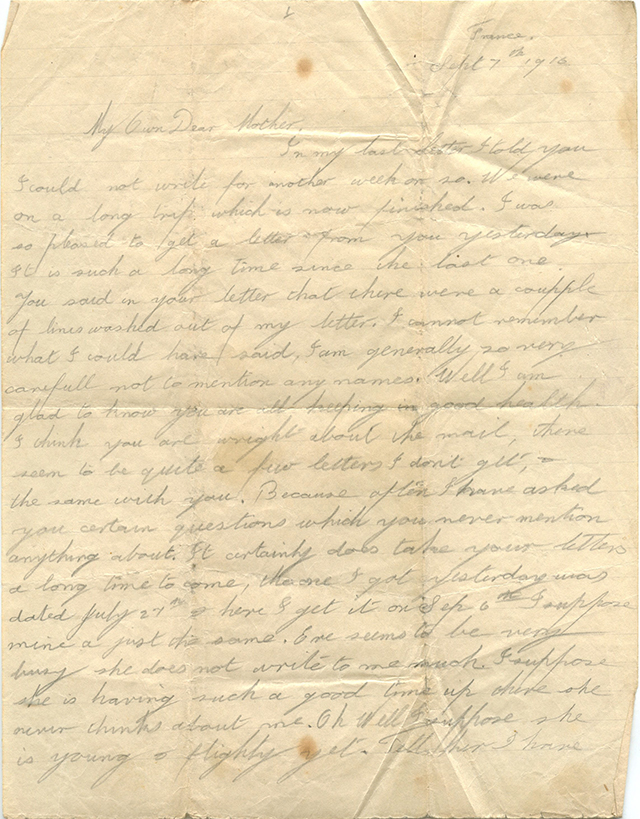 France.
Sept 7th 1916
My Own Dear Mother,
In my last letter I told you
I could not write for another week or so. We were
on a long trip which is now finished. I was
so pleased to get a letter from you yesterday
It is such a long time since the last one.
You said in your letter that there were a coupple
of lines washed out of my letter. I cannot remember
what I could have said, I am generally so very
carefull not to mention any names. Well I am
glad to know you are all keeping in good health.
I think you are wright about the mail, there
seem to be quite a few letters I don't get,
the same with you. Because often I have asked
you certain questions which you never mention
anything about. It certainly does take your letters
a long time to come, the one I got yesterday was
dated July 27th & here I get it on Sep 6th I suppose
mine a just the same. Eve seems to be very
busy she does not write to me much. I suppose
she is having such a good time up there she
never thinks about me. Oh Well I suppose she
is young & flighty yet. Tell her I have